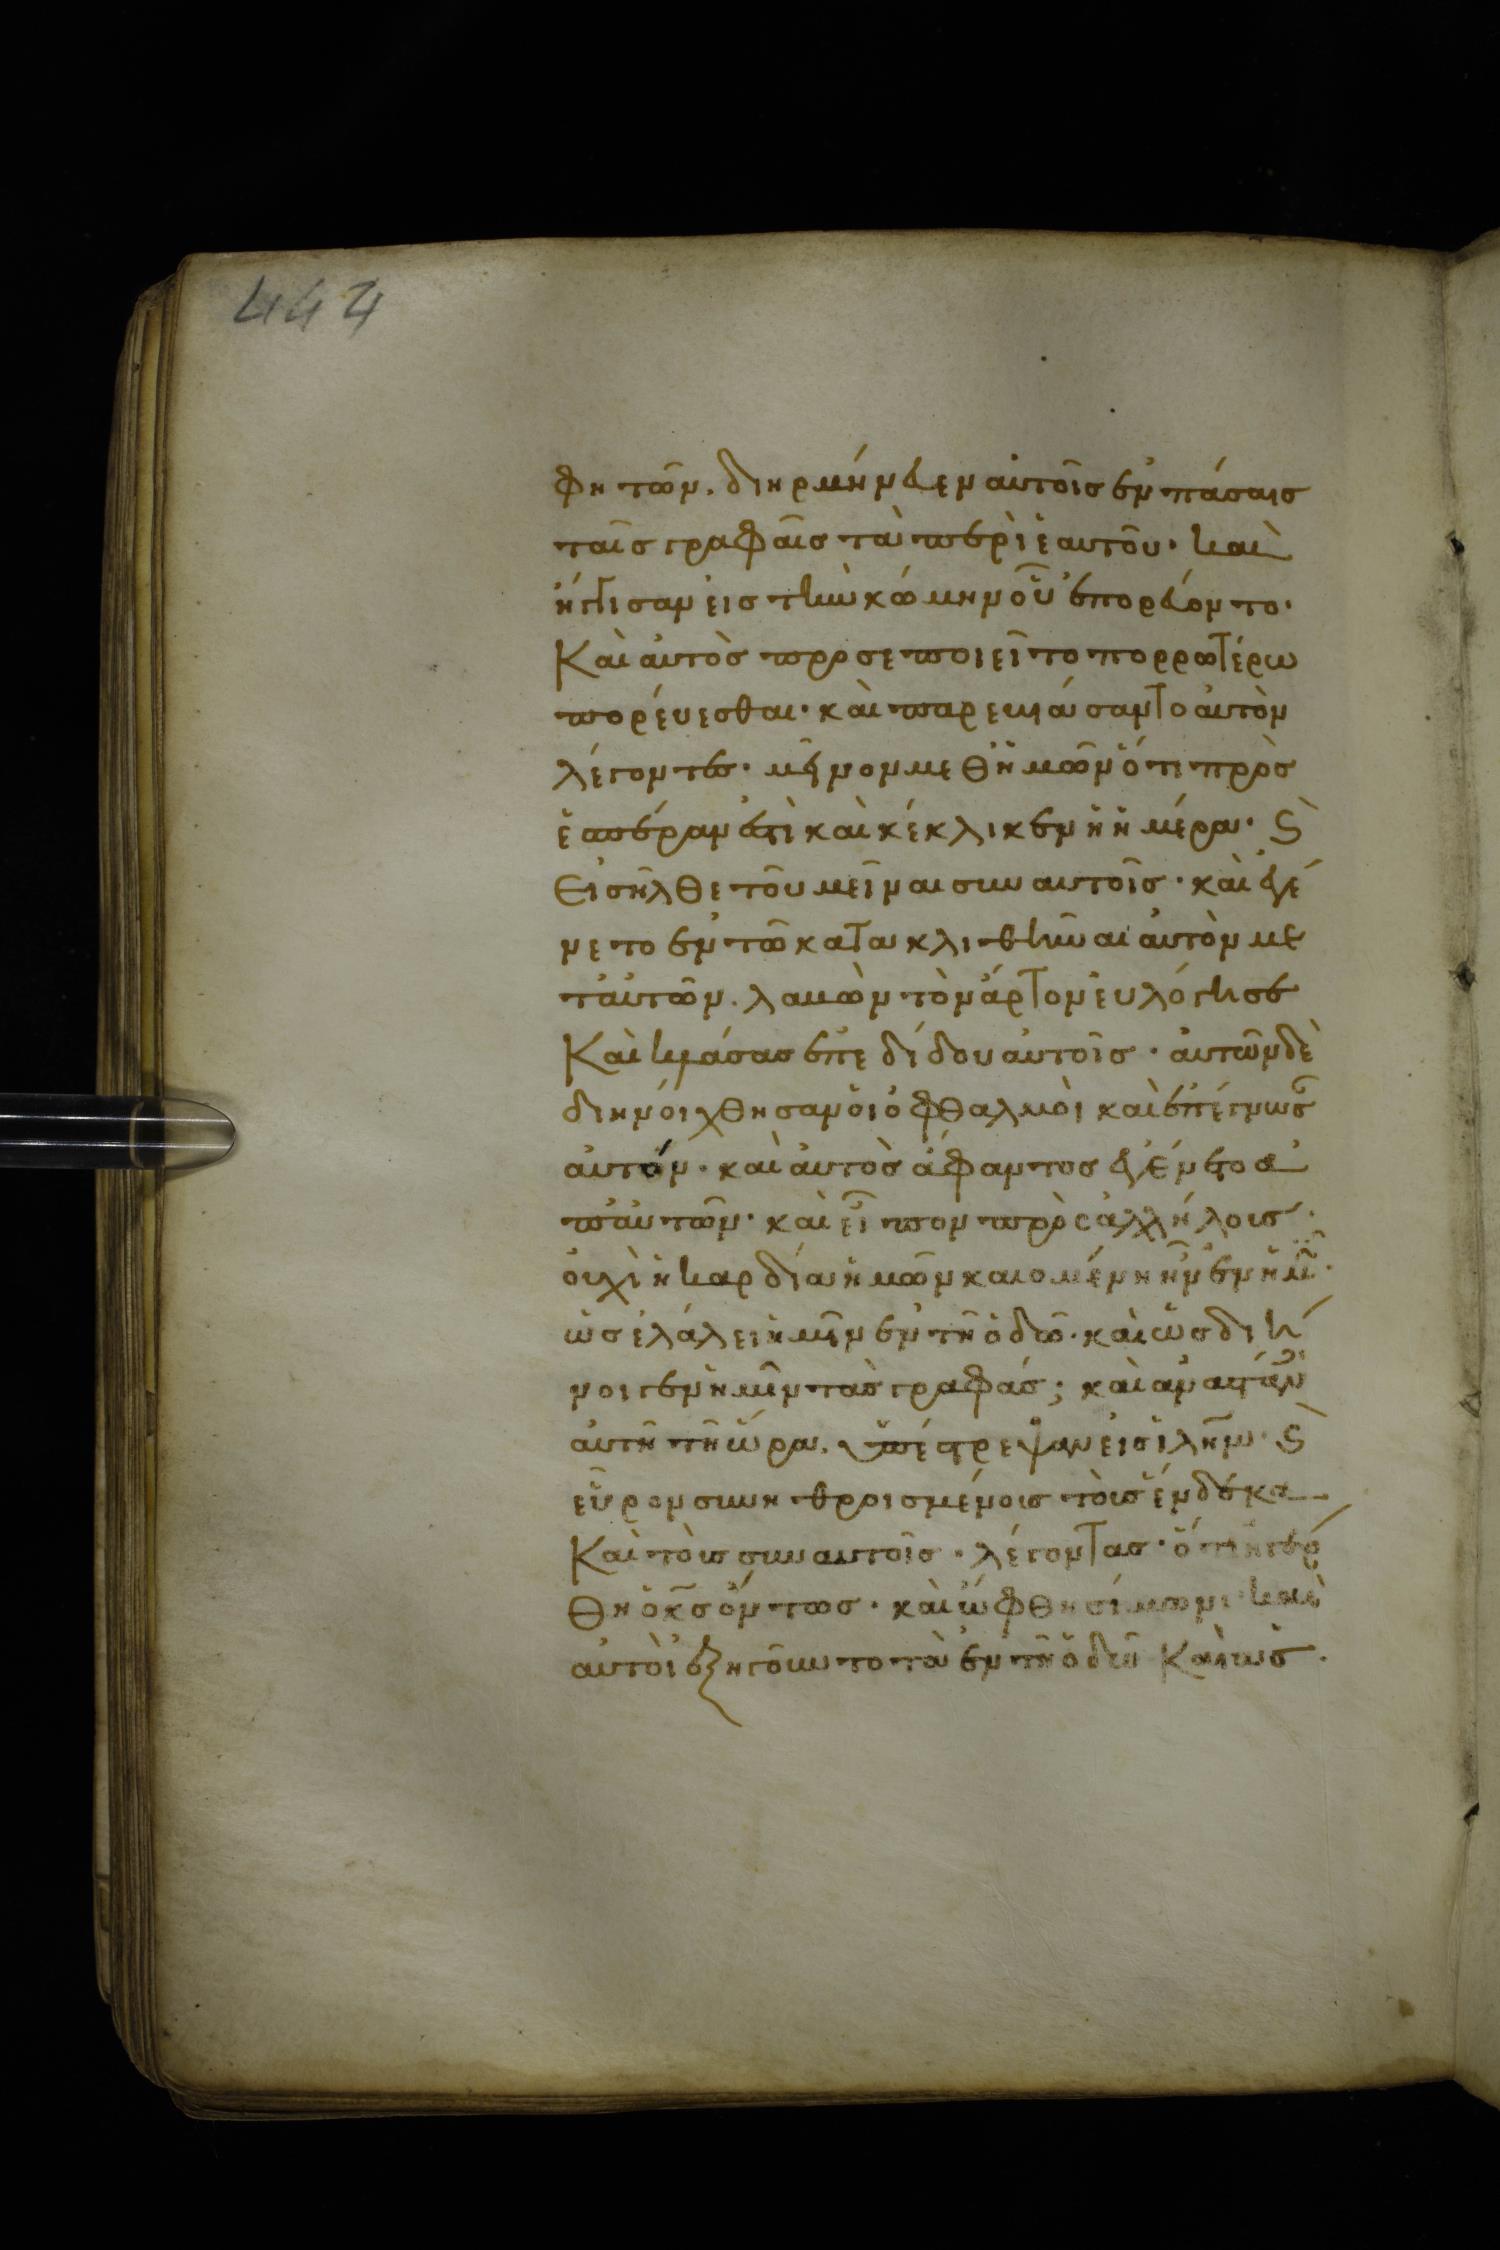 444
φητῶν. διηρμήνευεν αὐτοῖς ἐν πάσαις
ταῖς γραφαῖς τὰ περὶ ἑαυτοῦ· καὶ
ἤγγισαν εἰς τὴν κώμην οὗ ἐπορεύοντο·
Καὶ αὐτὸς προσεποιεῖτο πορρωτέρω
πορεύεσθαι· καὶ παρεβιάσαντο αὐτὸν
λέγοντες· μεῖνον μεθ ἡμῶν ὅτι πρὸς
ἑσπέραν ἐστὶ καὶ κέκλικεν ἡ ἡμέρα· ϛ̀
Εἰσῆλθε τοῦ μεῖναι συν αυτοῖς· καὶ ἐγέ
νετο ἐν τῶ κατακλιθῆναι αὐτὸν με
τ αὐτῶν. λαβὼν τὸν ἄρτον εὐλόγησε
Καὶ κλάσας ἐπεδίδου αὐτοῖς· αὐτῶν δὲ
διηνοίχθησαν οἱ ὀφθαλμοὶ καὶ ἐπέγνωσ
αὐτόν· καὶ αὐτὸς ἄφαντος ἐγένετο ἀ
π αὐτῶν· καὶ εἶπον πρὸς ἀλλήλους·
οὐχὶ ἡ καρδία ἡμῶν καιομένη ἦν ἐν ἡμῖ·
ὡς ἐλάλει ἡμῖν ἐν τῆ ὁδῶ· καὶ ὡς διή
νοιγεν ἡμῖν τὰς γραφάς; καὶ αναστάντες
αὐτῆ τῆ ὥρα, ὑπέστρεψαν εἰς ἱλῆμ· ϛ̀
εὗρον συνηθροισμένους τοὺς ἕνδεκα
Καὶ τοὺς συν αυτοῖς· λέγοντας· ὅτι ἠγέρ
θη ὁ κς ὄντως· καὶ ὤφθη σίμωνι· καὶ
αὐτοὶ ἐξηγοῦντο τὰ ἐν τῆ ὁδῶ Καὶ ὡς.